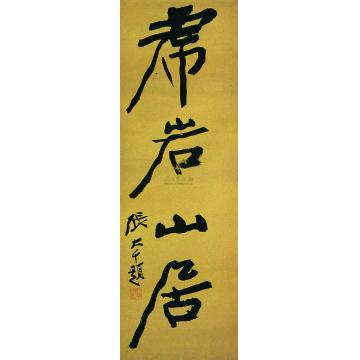 虎岩山居
張大千題